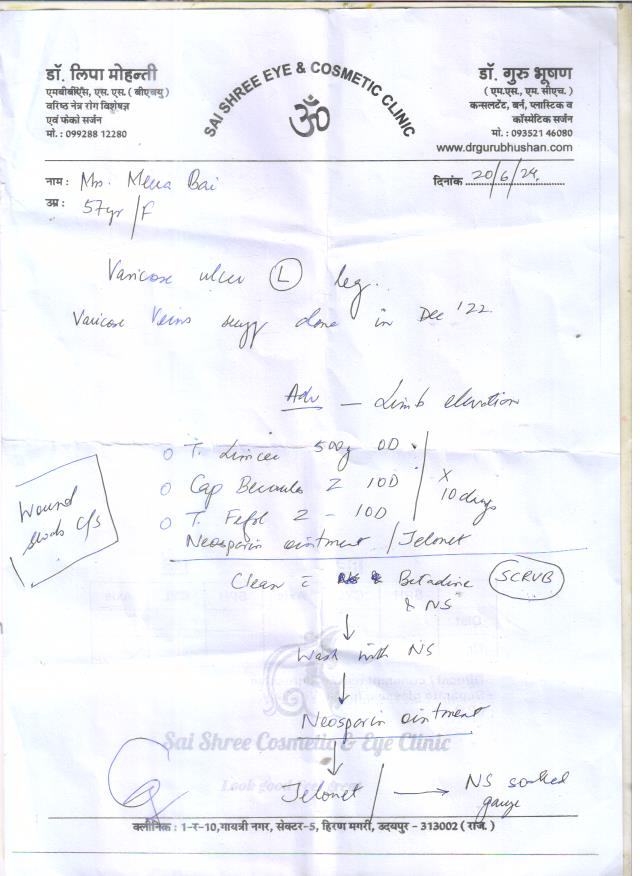 डॉ. लिपा मोहन्ती
एमबीबीएस, एस.एस. ( बीएचयु )
वरिष्ठ नेत्र रोग विशेषज्ञ
एवं फेको सर्जन
मो. : 099288 12280
SAI SHREE EYE & COSMETIC CLINIC
ॐ
डॉ. गुरु भूषण
( एम.एस., एम. सीएच. )
कन्सलटेंट, बर्न, प्लास्टिक व
कॉस्मेटिक सर्जन
मो. : 093521 46080
www.drgurubhushan.com
नाम : Mrs. Meera Bai
दिनांक 20/6/24
उम्र : 57yr/F
Varicose ulcer (L) leg.
Varicose Veins surgy done in Dec '22
Adv — Limb elevation
T. Limcee 500g OD
Cap Becosules Z 1OD
T. Fefol Z - 1OD
x 10 days
Neosporin ointment / Jelonet
Wound swab c/s
Clean c̄ Betadine SCRUB
& NS
↓
Wash with NS
↓
Neosporin ointment
Sai Shree Cosmetic & Eye Clinic
↓
Look good
Jelonet / → NS soaked
gauze
क्लीनिक : 1-र-10,गायत्री नगर, सेक्टर-5, हिरण मगरी, उदयपुर - 313002 ( राज. )